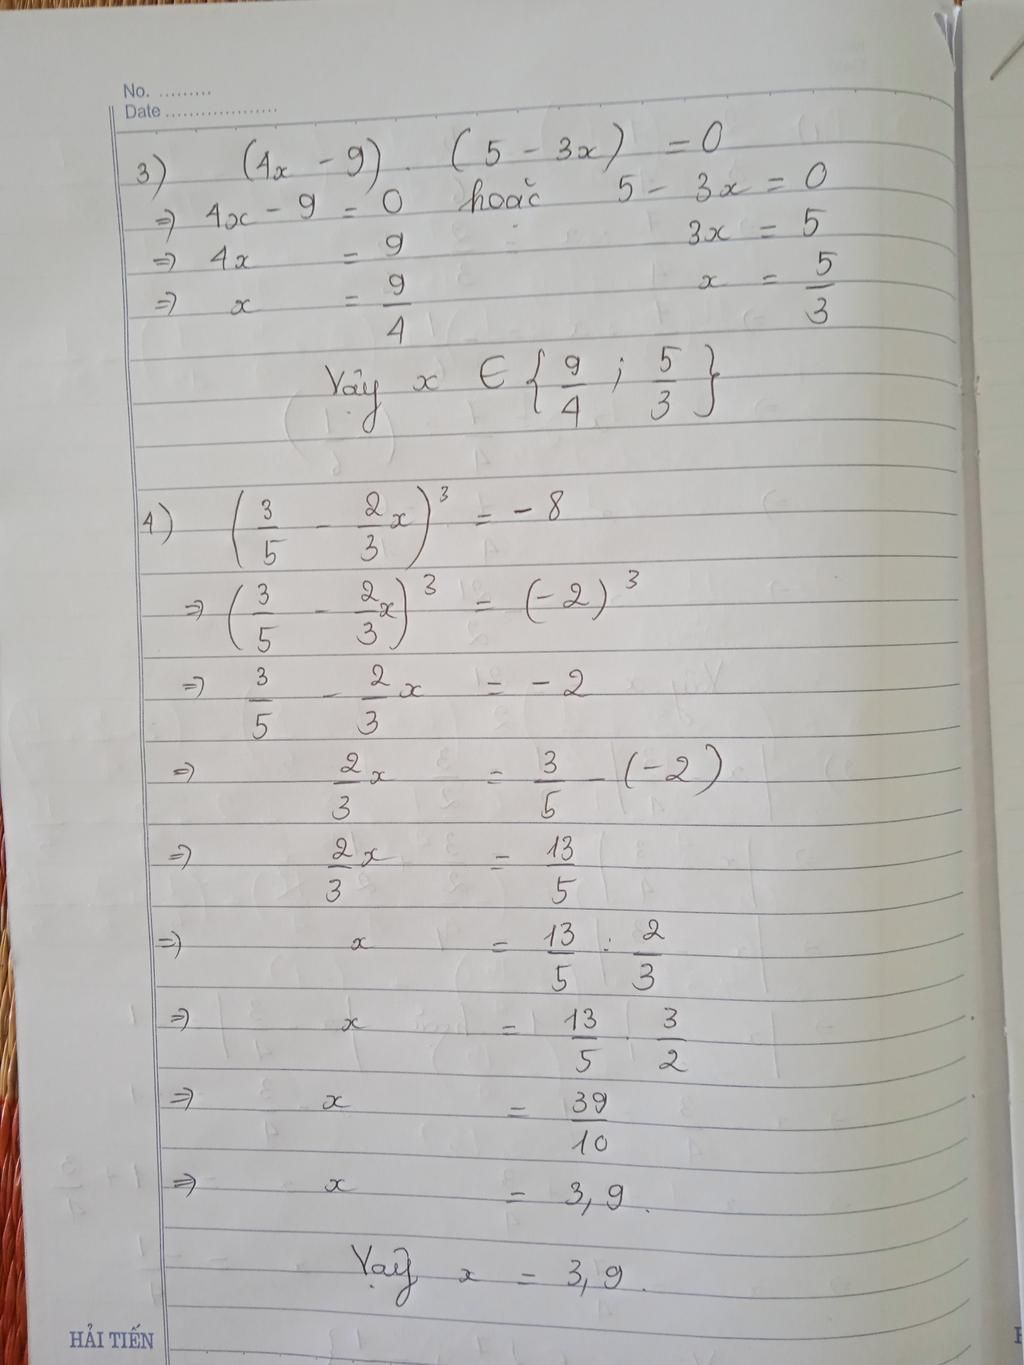 No. .........
Date ....................
3) (4x - 9) . (5 - 3x) = 0
=> 4x - 9 = 0 hoặc 5 - 3x = 0
=> 4x = 9 3x = 5
=> x = 9/4 x = 5/3
Vậy x ∈ {9/4 ; 5/3}
4) (3/5 - 2/3 x)³ = - 8
=> (3/5 - 2/3 x)³ = (-2)³
=> 3/5 - 2/3 x = - 2
=> 2/3 x = 3/5 - (-2)
=> 2/3 x = 13/5
=> x = 13/5 : 2/3
=> x = 13/5 . 3/2
=> x = 39/10
=> x = 3,9.
Vậy x = 3,9.
HẢI TIẾN